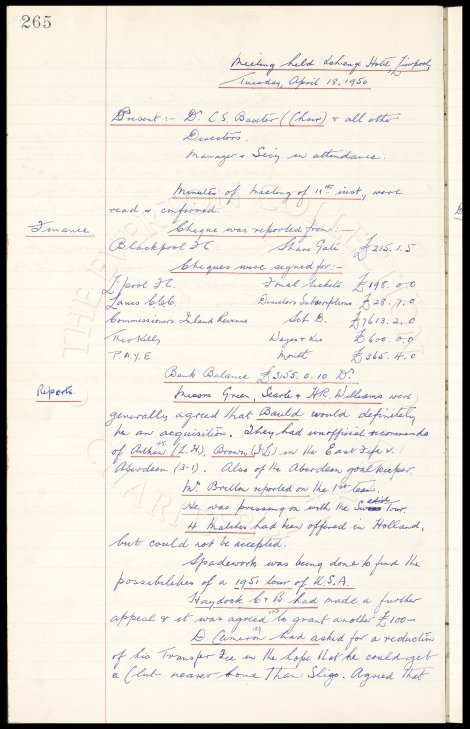 265
Meeting held Exchange Hotel, Liverpool,
Tuesday, April 18, 1950
Present:- Dr. C.S. Baxter (Chair) & all other
Directors.
Manager & Secy in attendance.
Minutes of Meeting of inst., were
read & confirmed.
Finance
Cheque was reported from:-
Blackpool F.C. Share Gate £215.1.5
Cheques were signed for:-
L'pool F.C. Final Tickets £198.0.0
Lancs C.C.C. Directors Subscriptions £28.7.0
Commissioners Inland Revenue Sch D. £7613.2.0
Theo Kelly Wages & Exs £600.0.0
P.A.Y.E Month £365.4.0
Bank Balance £3155.0.10 Dr
Reports.
Messrs Green, Searle & H.R. Williams were
generally agreed that Bauld would definitely
be an acquisition. They had unofficial recommends
of (L.H), Brown (I.L) in the East Fife v.
Aberdeen (3-1). Also of the Aberdeen goalkeeper.
Mr. Britton reported on the 1st team.
He was pressing on with the Swedish Tour.
4 Matches had been offered in Holland,
but could not be accepted.
Spadework was being done to find the
possibilities of a 1951 tour of U.S.A.
Haydock C & B had made a further
appeal & it was agreed to grant another £100-
D. Cameron had asked for a reduction
of his Transfer Fee in the hope that he could get
a Club nearer home than Sligo. Agreed that